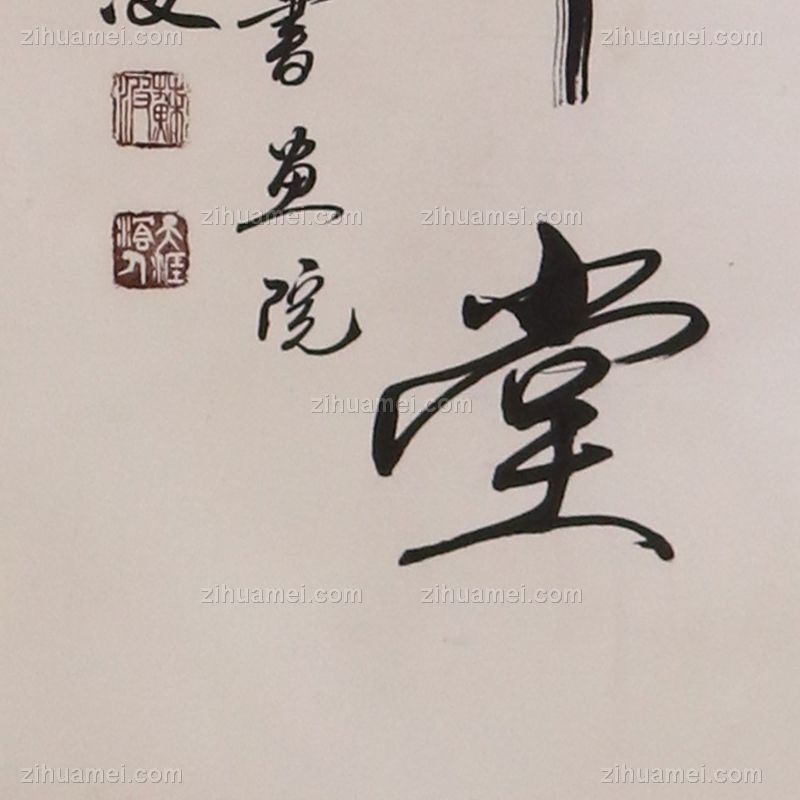 堂
書画院
蘇波
天涯
zihuamei.com zihuamei.com
zihuamei.com zihuamei.com
zihuamei.com
zihuamei.com zihuamei.com
zihuamei.com zihuamei.com